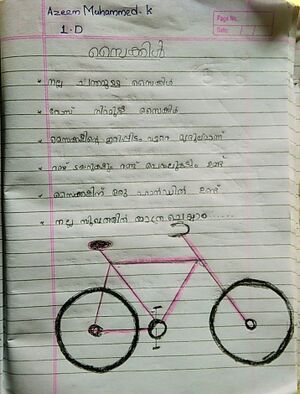 Azeem Muhammed. K
Page No.
1. D
Date
സൈക്കിൾ
* നല്ല ചന്തമുള്ള സൈക്കിൾ
* റോസ് നിറമുള്ള സൈക്കിൾ
* സൈക്കളിന്റെ ഇരിപ്പിടം വളരെ മൃദുലമാണ്
* രണ്ട് ടയറുകളും രണ്ട് പെഡലുകളും ഉണ്ട്
* സൈക്കളിന് ഒരു ഹാൻഡിൽ ഉണ്ട്
* നല്ല സുഖത്തിൽ യാത്ര ചെയ്യാം......